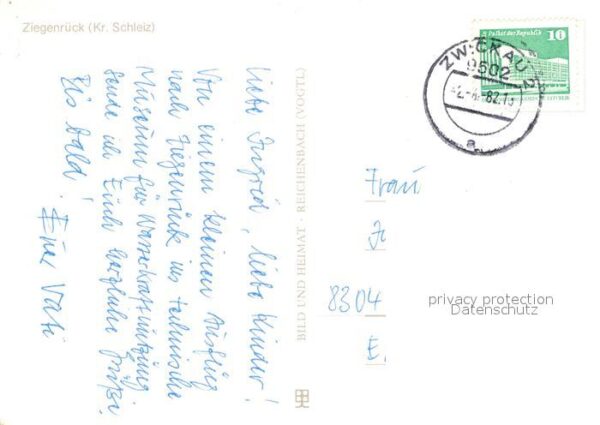 Ziegenrück (Kr. Schleiz)
Liebe Ingrid, liebe Kinder!
Von einem kleinen Ausflug
nach Ziegenrück ins technische
Museum für Wasserkraftnutzung
sende ich Euch herzliche Grüße.
Bis bald!
Euer Vati
BILD UND HEIMAT · REICHENBACH (VOGTL)
Palast der Republik 10
ZWICKAU 2
9502
82.1
a
Frau
8304
E.
privacy protection
Datenschutz